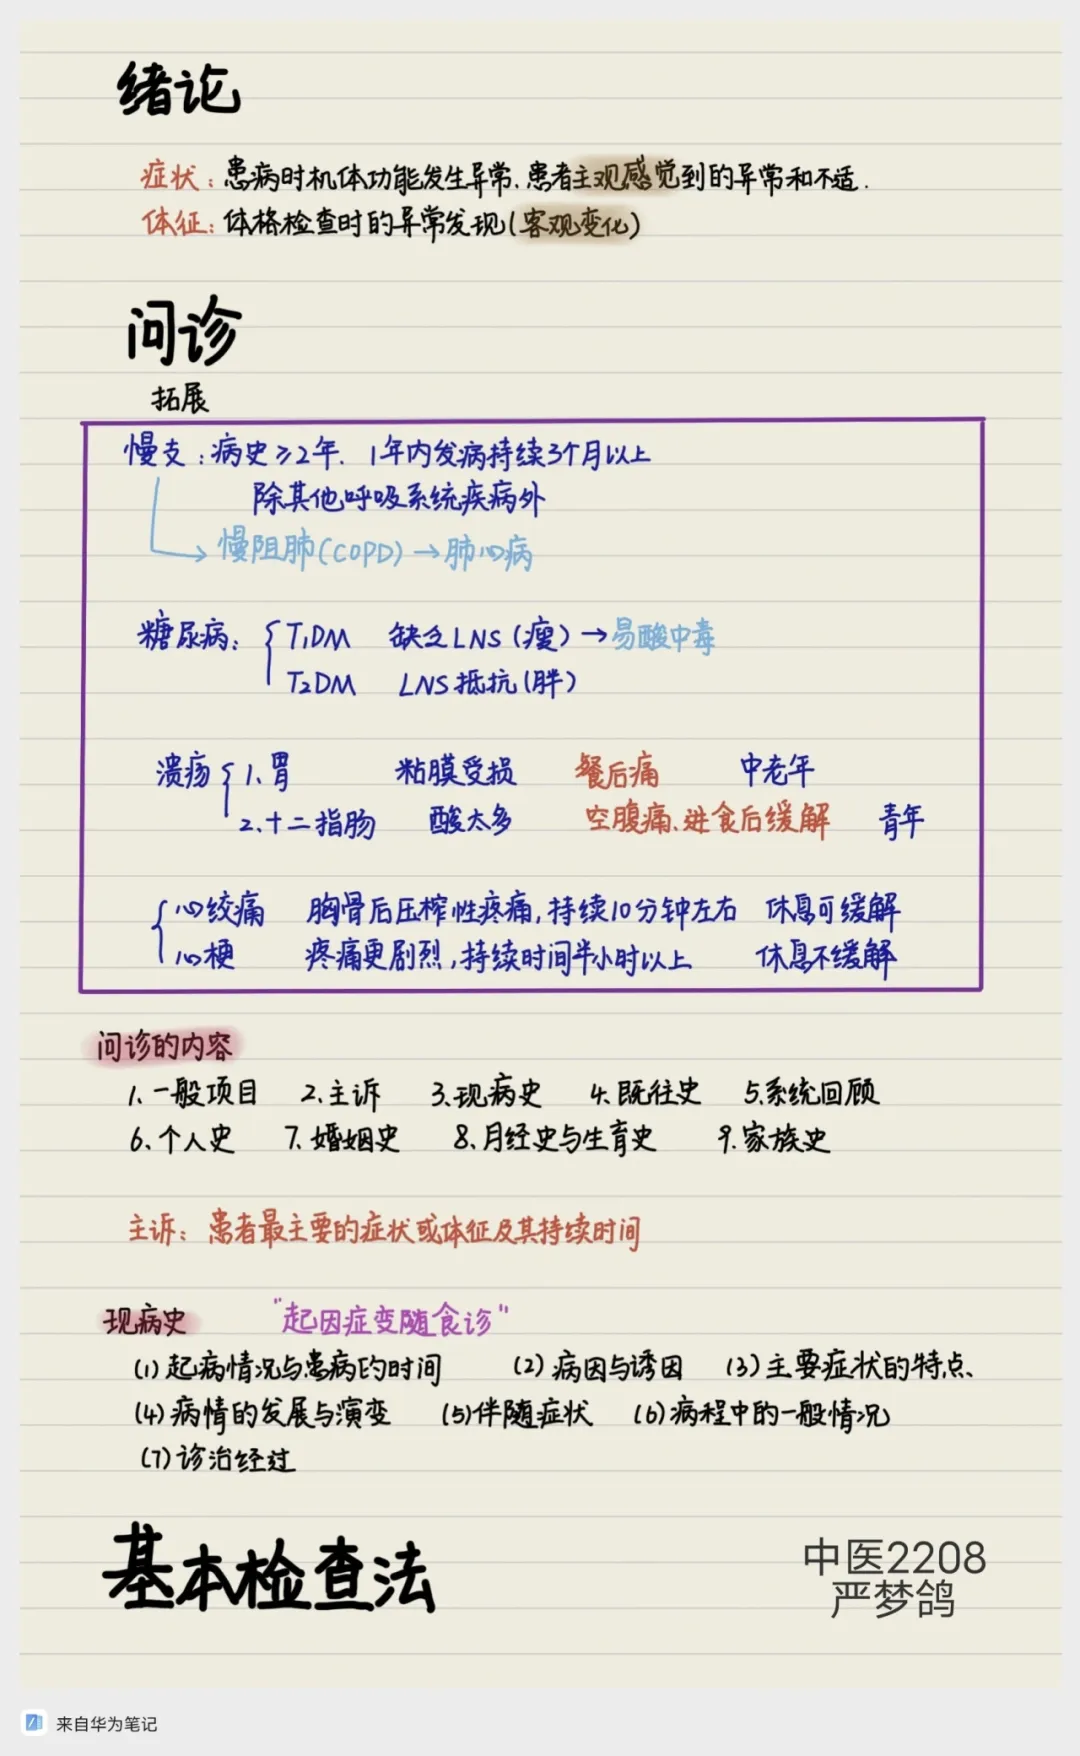 绪论
症状：患病时机体功能发生异常.患者主观感觉到的异常和不适.
体征：体格检查时的异常发现(客观变化)
问诊
拓展
慢支：病史≥2年. 1年内发病持续3个月以上
除其他呼吸系统疾病外
慢阻肺(COPD)→肺心病
糖尿病： T1DM 缺乏LNS (瘦) →易酸中毒
T2DM LNS抵抗(胖)
溃疡 1.胃 粘膜受损 餐后痛 中老年
2.十二指肠 酸太多 空腹痛.进食后缓解 青年
心绞痛 胸骨后压榨性疼痛,持续10分钟左右 休息可缓解
心梗 疼痛更剧烈,持续时间半小时以上 休息不缓解
问诊的内容
1.一般项目 2.主诉 3.现病史 4.既往史 5.系统回顾
6.个人史 7.婚姻史 8.月经史与生育史 9.家族史
主诉：患者最主要的症状或体征及其持续时间
现病史 "起因症变随食诊"
(1)起病情况与患病的时间 (2)病因与诱因 (3)主要症状的特点、
(4)病情的发展与演变 (5)伴随症状 (6)病程中的一般情况
(7)诊治经过
基本检查法
中医2208
严梦鸽
来自华为笔记